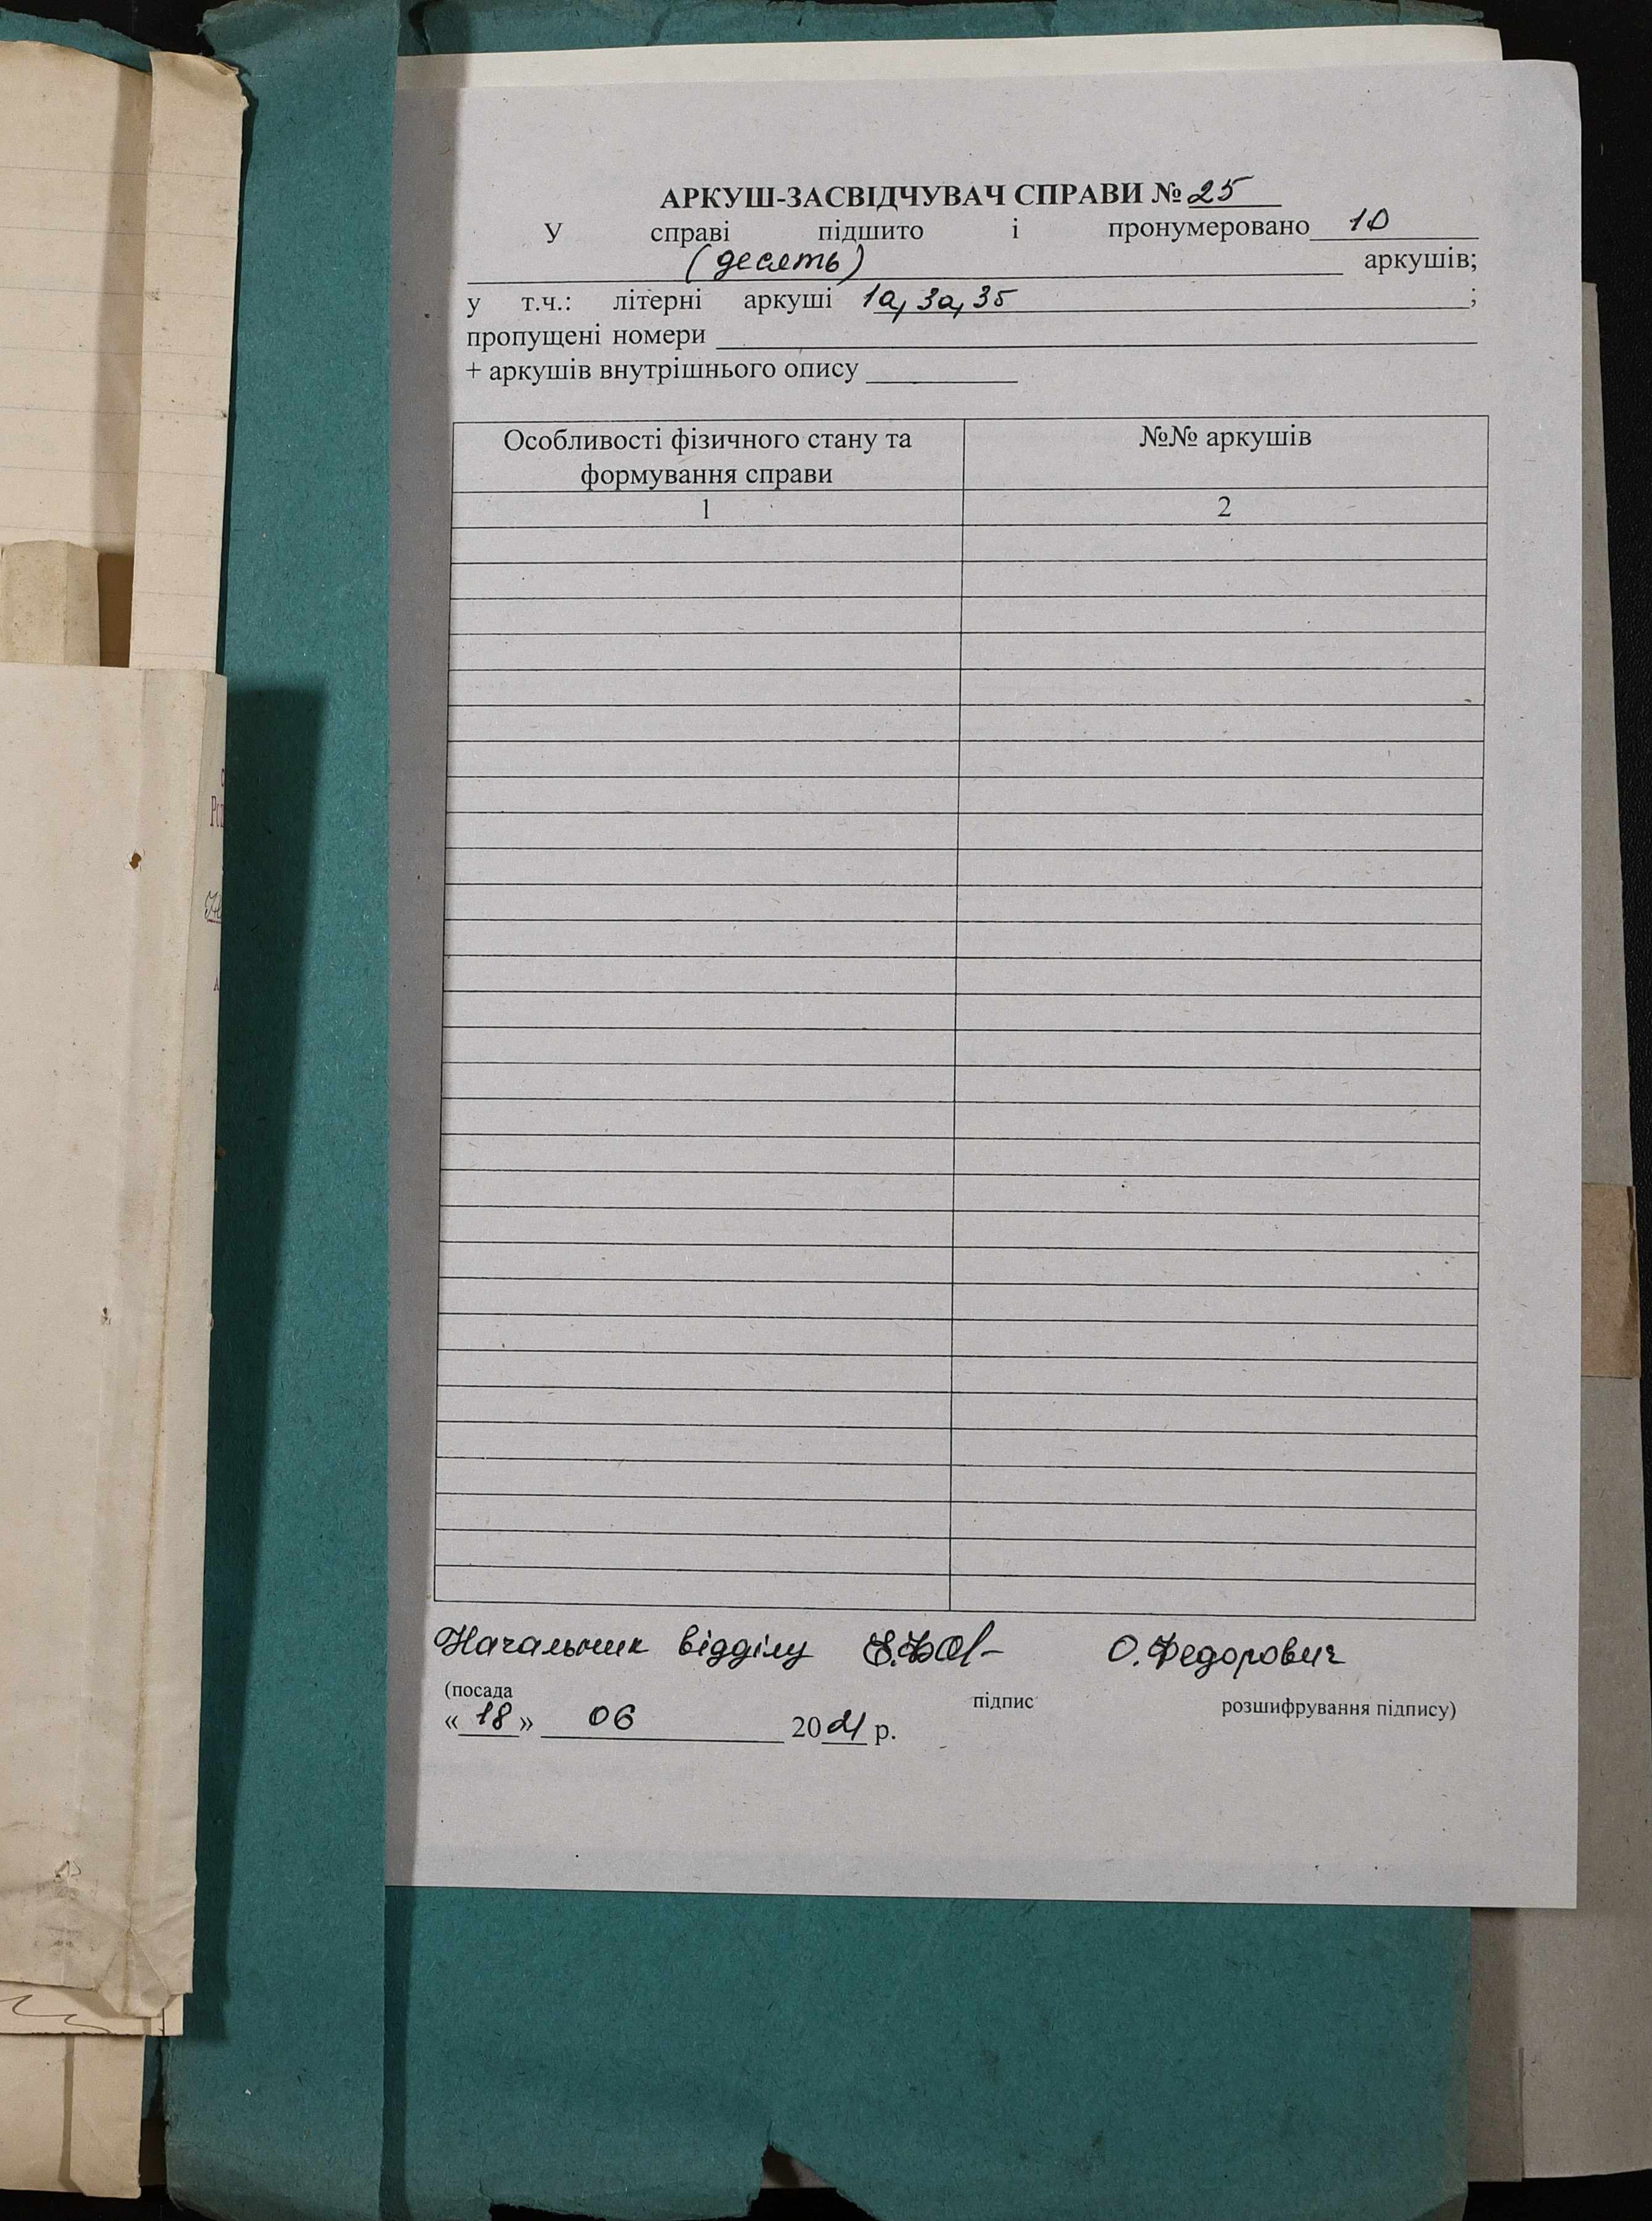 АРКУШ-ЗАСВІДЧУВАЧ СПРАВИ № 25
У справі підшито і пронумеровано 10
(десять) аркушів;
у т.ч.: літерні аркуші 1а, 3а, 3б ;
пропущені номери
+ аркушів внутрішнього опису
Особливості фізичного стану та формування справи
№№ аркушів
1 2
Начальник відділу О.Федорович
(посада підпис розшифрування підпису)
«18» 06 2021 р.